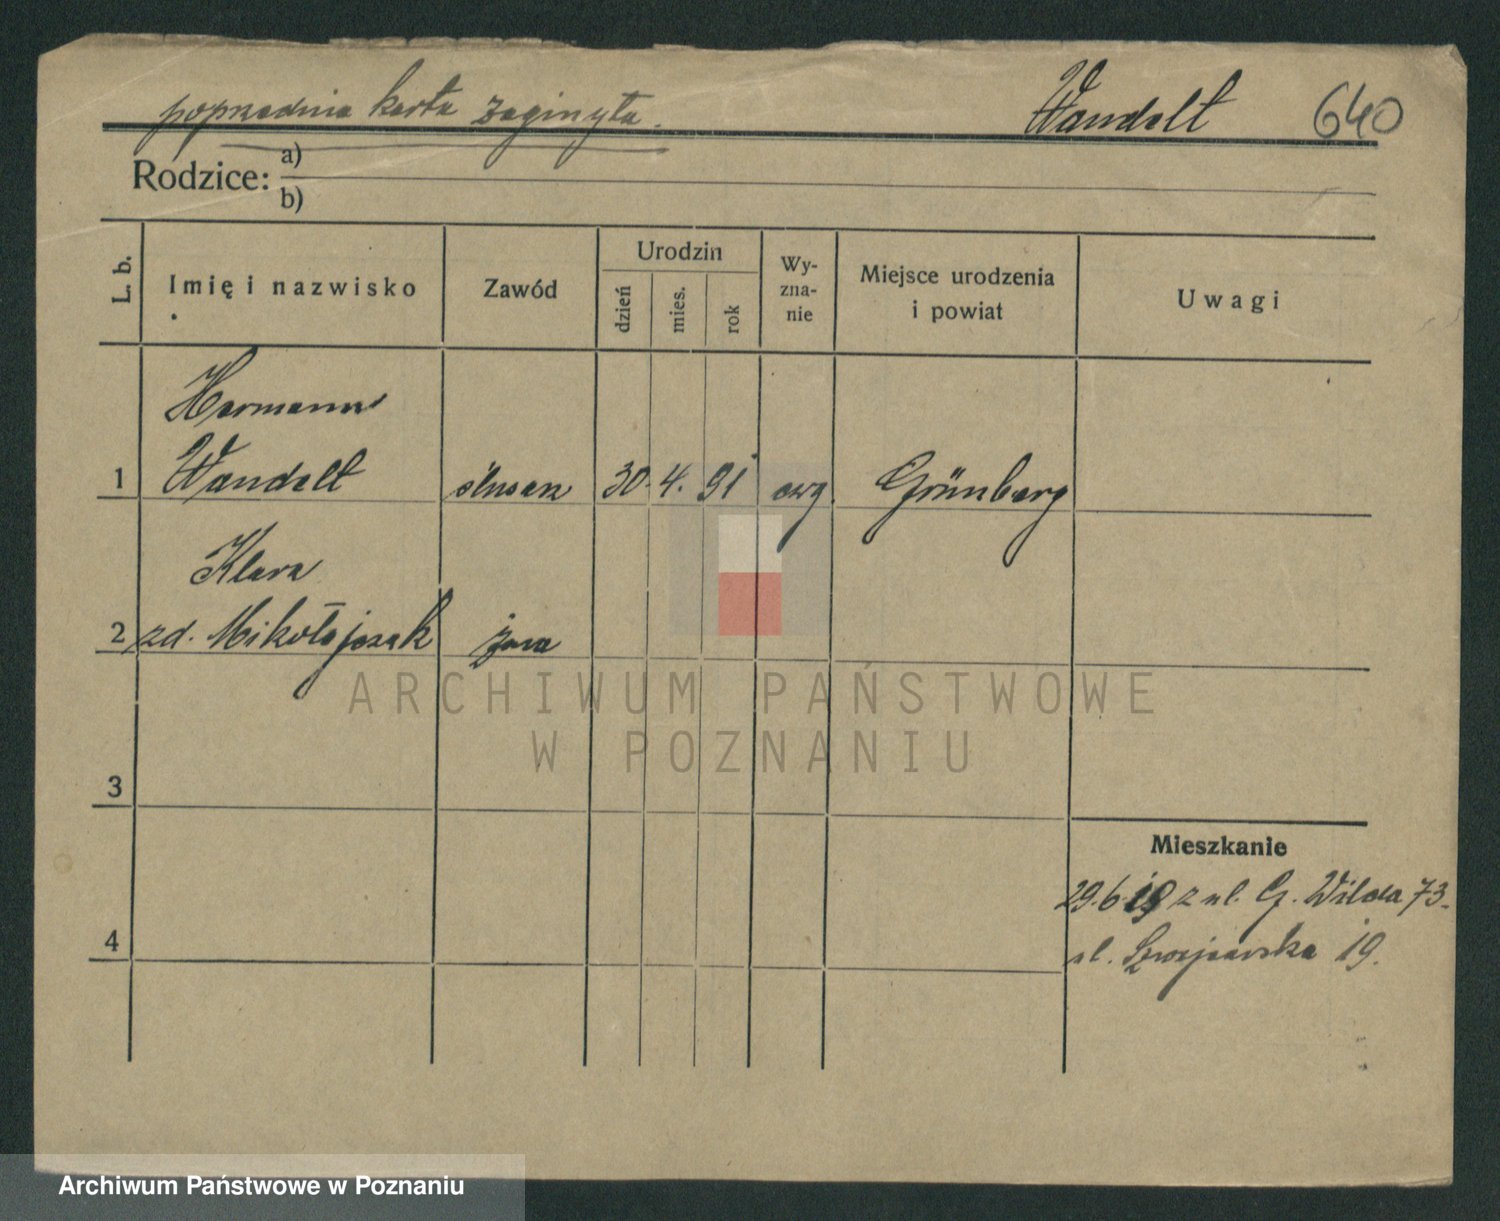 poprzednia karta zaginęła.
Wandelt 640
Rodzice: a)
b)
L. b.
Imię i nazwisko
Zawód
Urodzin
dzień
mies.
rok
Wy-
zna-
nie
Miejsce urodzenia
i powiat
Uwagi
Hermann
1 Wandelt ślusarz 30. 4. 91 ewg. Grünberg
Klara
2 zd. Mikołajczak żona
ARCHIWUM PAŃSTWOWE
W POZNANIU
3
Mieszkanie
29.6.19 z ul. G. Wilda 73.
4
ul. Szwajcarska 19.
Archiwum Państwowe w Poznaniu